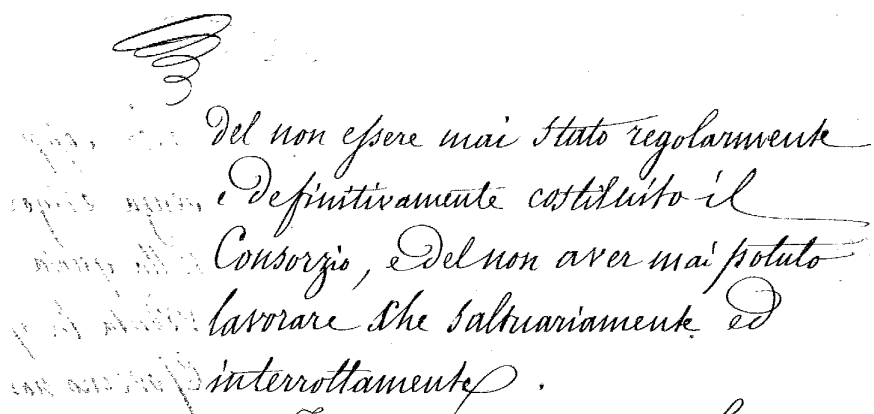 del non essere mai stato regolarmente
e definitivamente costituito il
Consorzio, e del non aver mai potuto
lavorare che saltuariamente ed
interrottamente.